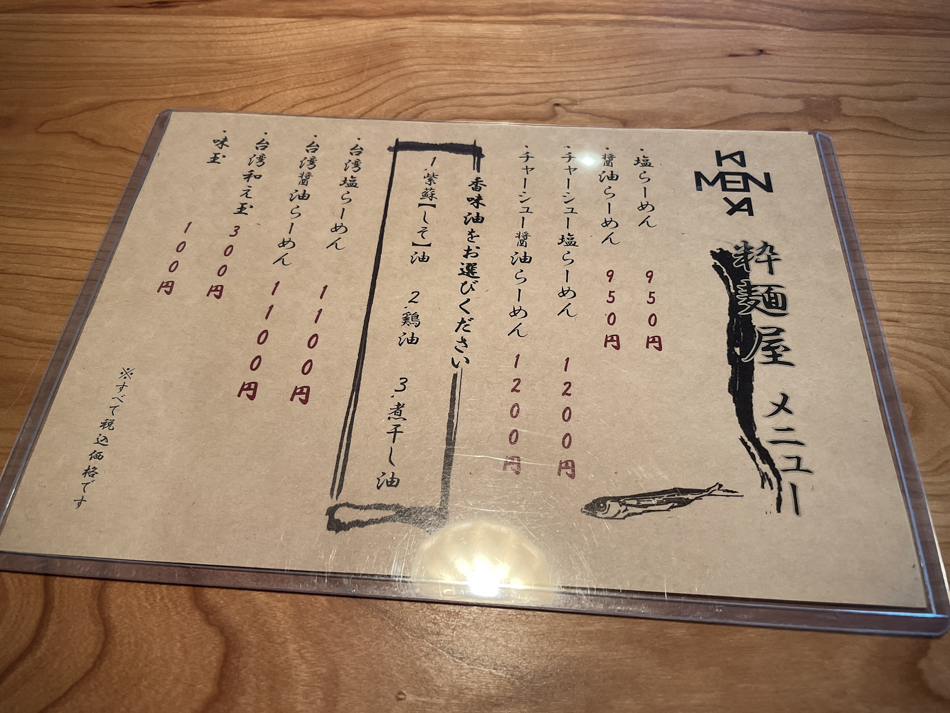 MENYA
粋麺屋 メニュー
・塩らーめん 950円
・醤油らーめん 950円
・チャーシュー塩らーめん 1200円
・チャーシュー醤油らーめん 1200円
香味油をお選びください
1.紫蘇【しそ】油 2.鶏油 3.煮干し油
・台湾塩らーめん 1100円
・台湾醤油らーめん 1100円
・台湾和え玉 300円
・味玉 100円
※すべて税込価格です